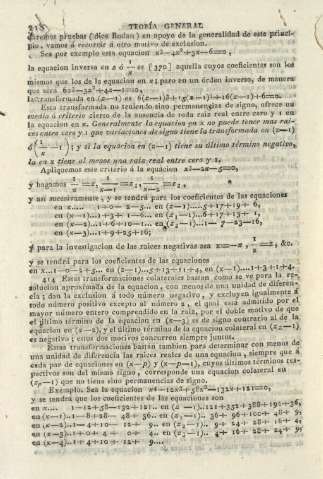 218 TEORÍA GENERAL
pruebas (dice Budan) en apoyo de la generalidad de este princi-
pio, vamos á recurrir á otro motivo de exclusion.
Sea por exemplo esta equacion x³-4x²+3x-6=0,
la equacion inversa en z ó es (370) aquella cuyos coeficientes son los
mismos que los de la equacion en x; pero en un órden inverso, de manera
que será 6z³-3z²+4z-1=0,
la transformada en (z-1) es 6(z-1)³+15(z-1)²+16(z-1)+6=0.
Esta transformada no teniendo sino permanencias de signo, ofrece un
medio ó criterio cierto de la ausencia de toda raiz real entre cero y 1 en
la equacion en x. Generalmente la equacion en x no puede tener mas raí-
ces entre cero y 1 que variaciones de signo tiene la transformada en (z-1)
ó ; y si la equacion en (z-1) tiene su último término negativo,
la en x tiene al menos una raiz real entre cero y 1.
Apliquemos este criterio á la equacion x³-2x-5=0,
y hagamos
y así sucesivamente, y se tendrá para los coeficientes de las equaciones
en x......1+0- 2-5... en (z-1)...5+17+19+ 6,
en (x-1)..1+3+ 1-6... en (z₁-1)..6+17+13+ 1,
en (x-2)..1+6+10-1... en (z₂-1)..1- 7-23-16,
en (x-3)..1+9+25+16;
y para la investigacion de las raices negativas sea &c.
y se tendrá para los coeficientes de las equaciones
en x...1-0-2+5... en (z-1)...5+13+11+4, en (x-1)...1+3+1+4.
414 Estas transformaciones colaterales bastan como se ve para la re-
solucion aproximada de la equacion, con menos de una unidad de diferen-
cia; dan la exclusion á todo número negativo, y excluyen igualmente á
todo número positivo excepto al número 2, el qual está admitido por el
mayor número entero comprendido en la raiz, por el doble motivo de que
el último término de la equacion en (x-3) es de signo contrario al de la
equacion en (x-2), y el último término de la equacion colateral en (z₂-1)
es negativo; estos dos motivos concurren siempre juntos.
Estas transformaciones bastan tambien para determinar con menos de
una unidad de diferencia las raices reales de una equacion, siempre que á
cada par de equaciones en (x-p) y (x-p-1), cuyos últimos términos res-
pectivos son del mismo signo, corresponde una equacion colateral en
que no tiene sino permanencias de signo.
Exemplo. Sea la equacion x⁴-12x³+58x²-132x+121=0,
y se tendrá que los coeficientes de las equaciones son
en x..... 1-12+58-132+121.. en (z-1)..121+352+388+192+36,
en (x-1)..1- 8+28- 48+ 36.. en (z₁-1).. 36+ 96+100+ 48+ 9,
en (x-2)..1- 4+10- 12+ 9.. en (z₂-1).. 9+ 24+ 28+ 16+ 4,
en (x-3)..1+ 0+ 4+ 0+ 4.. en (z₃-1).. 4+ 16+ 28+ 24+ 9,
en (x-4)..1+ 4+10+ 12+ 9....